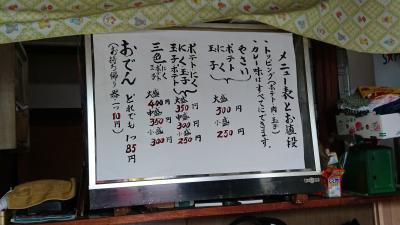 メニュー表とお値段
・トッピング(ポテト・肉・玉子)
・カレー味はすべてにできます。
やさい
ポテト
にく
玉子
大盛 300円
小盛 250円
ポテトにく
にく玉子
玉子ポテト
大盛 350円
中盛 300円
小盛 250円
三色
大盛 400円
中盛 350円
小盛 300円
おでん どれでも一つ85円
(お持ち帰り 一つ10円)